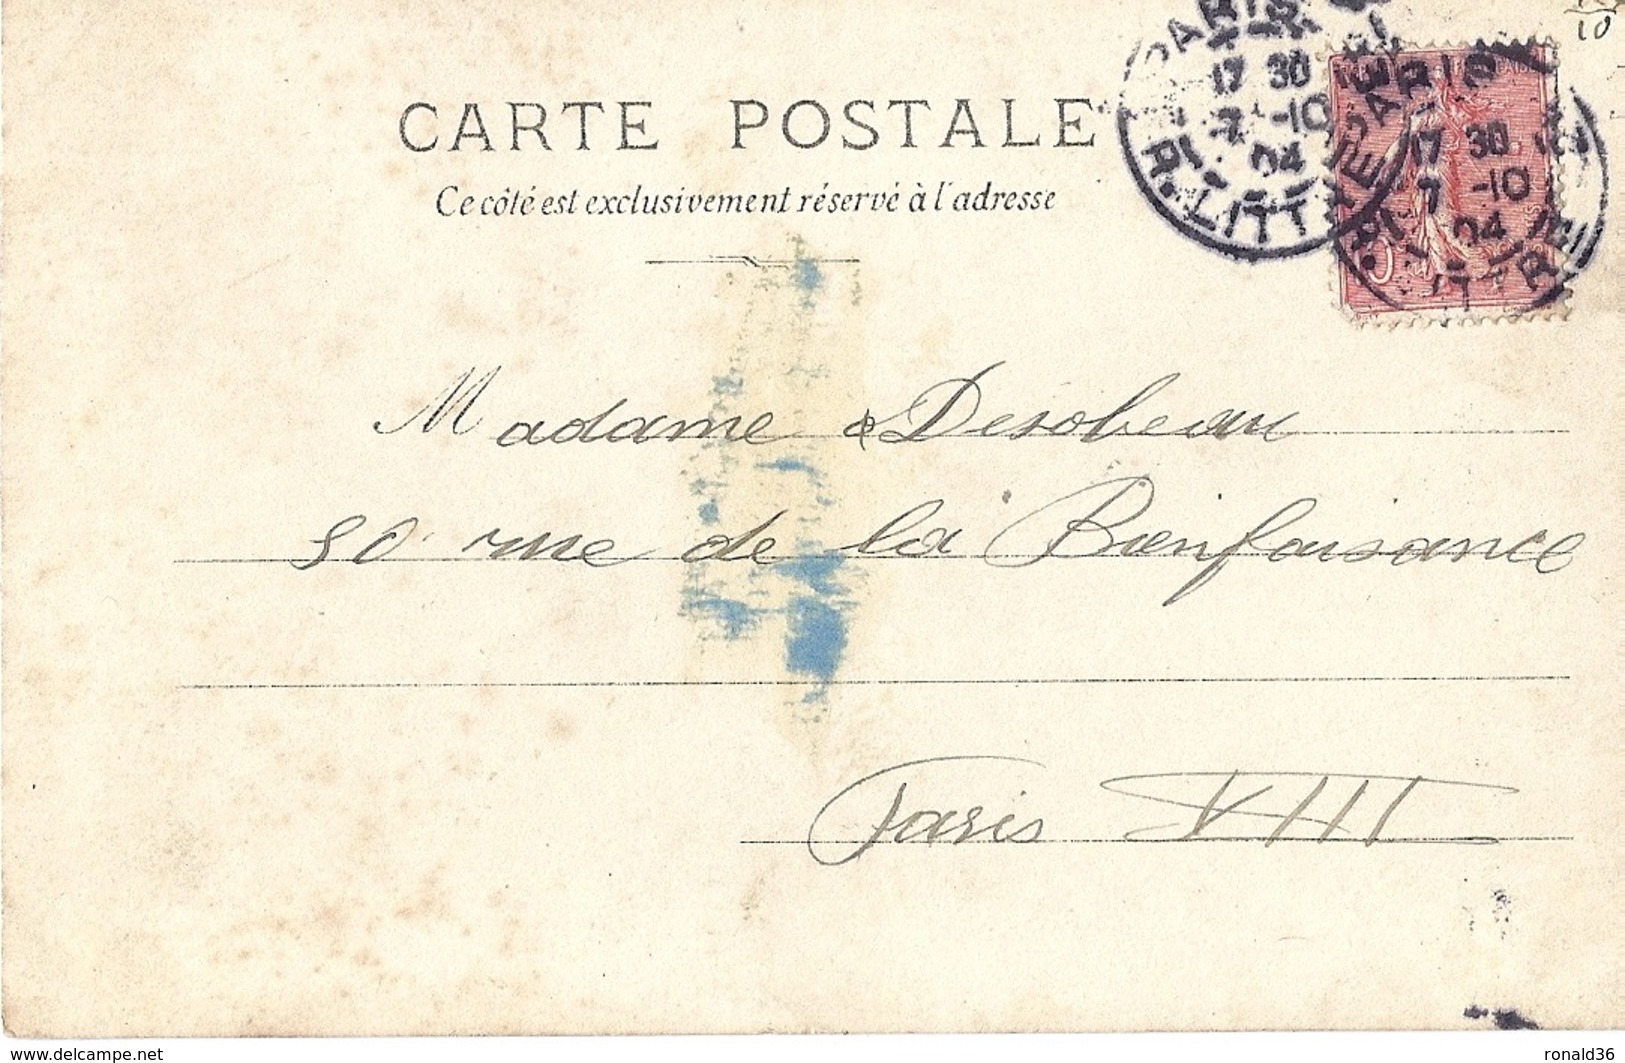 CARTE POSTALE
Ce côté est exclusivement réservé à l'adresse
PARIS
17 30
7 -10
04
R. LITTRÉ
PARIS
17 30
7 -10
04
10
Madame Desobeau
50 rue de la Bienfaisance
Paris VIII
www.delcampe.net
ronald36